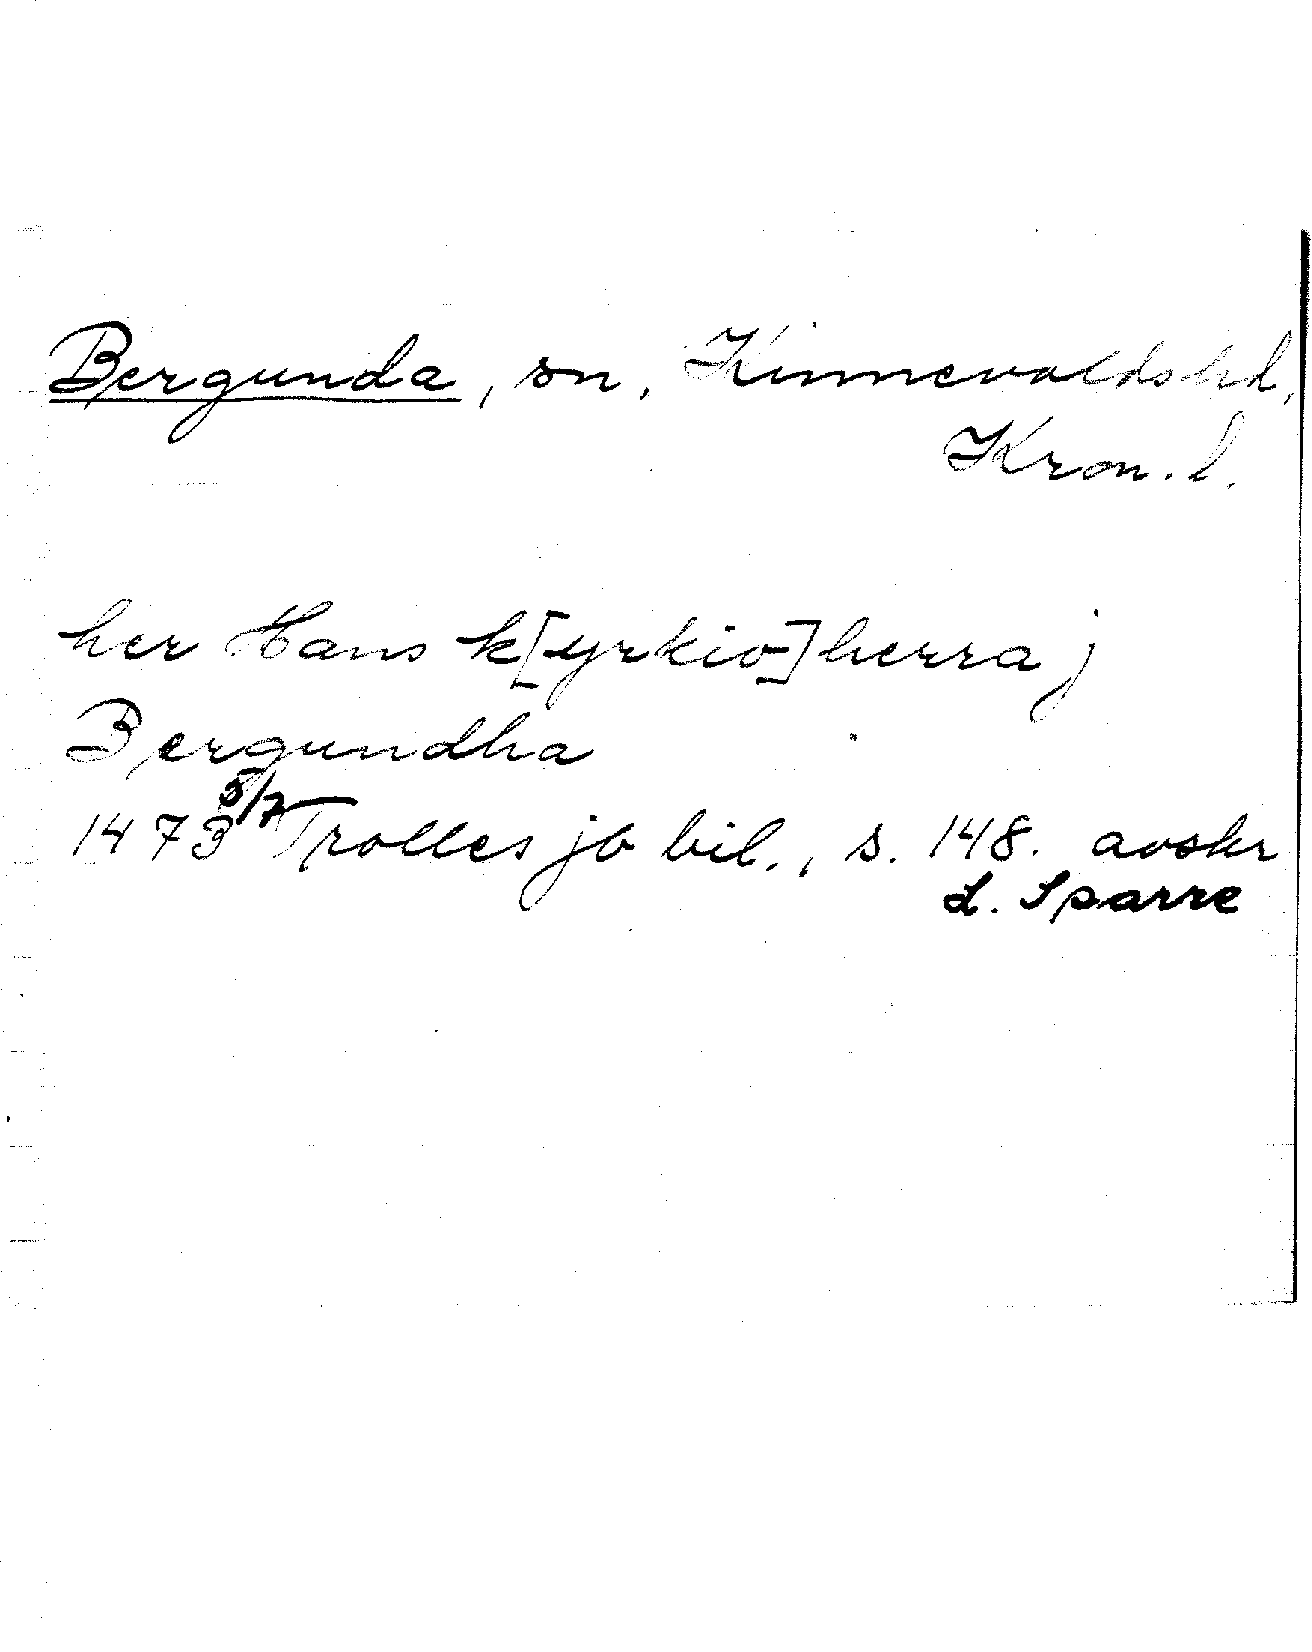 Bergunda, sn, Kinnevalds hd,
Kron. l.
her Hans k[yrkio]herra j
Bergundha
1473 5/7 Trolles jb bil., s. 148. avskr
L. Sparre